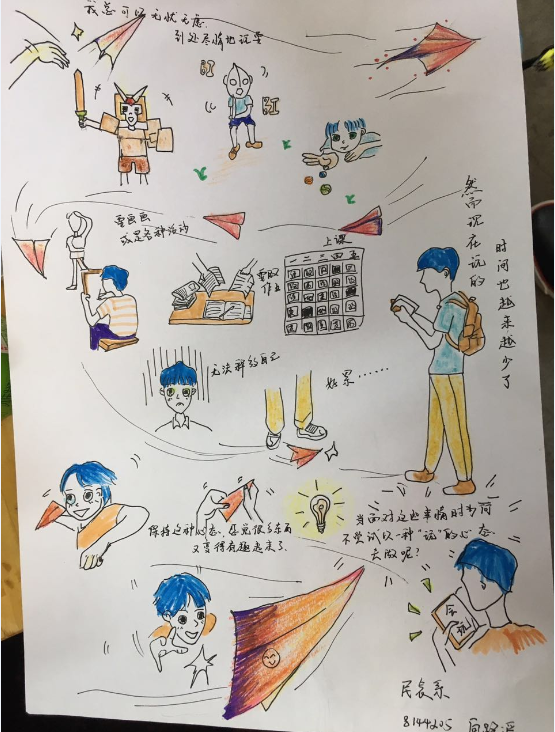 我总可以无忧无虑
到处尽情地玩耍
然而现在玩的
时间也越来越少了
要画画
或是各种活动
要取
作业
上课
一二三四五
无法释放自己
好累……
当面对这些事情时为何
不尝试以一种“玩”的心态
去做呢?
保持这种心态,感觉很多东西
又变得有趣起来了.
会
玩
民食系
8144205